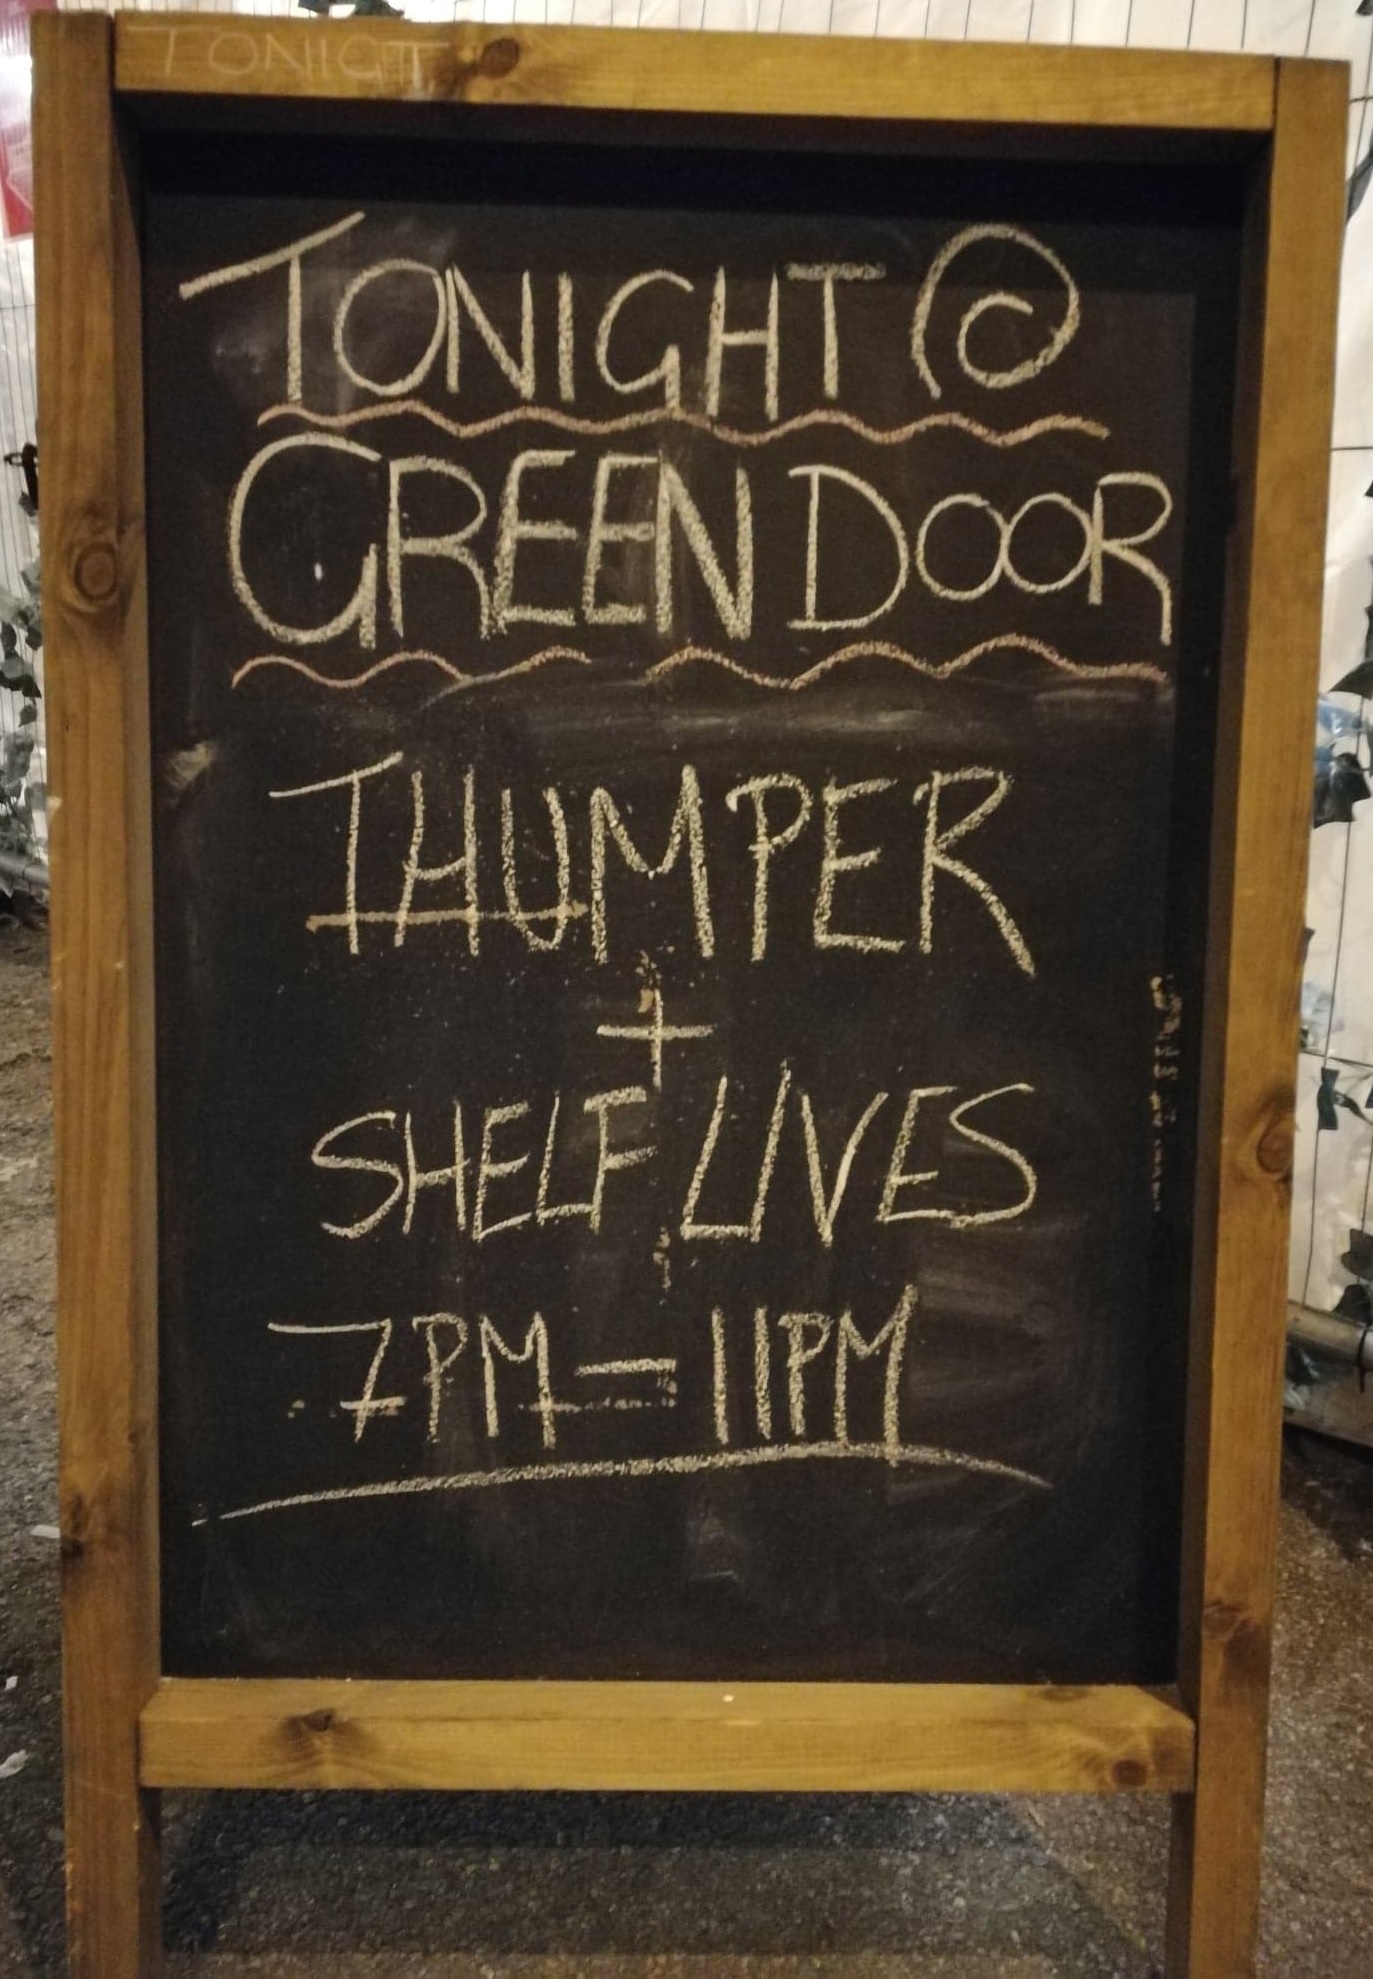 TONIGHT
TONIGHT @
GREEN DOOR
THUMPER
+
SHELF LIVES
7PM - 11PM